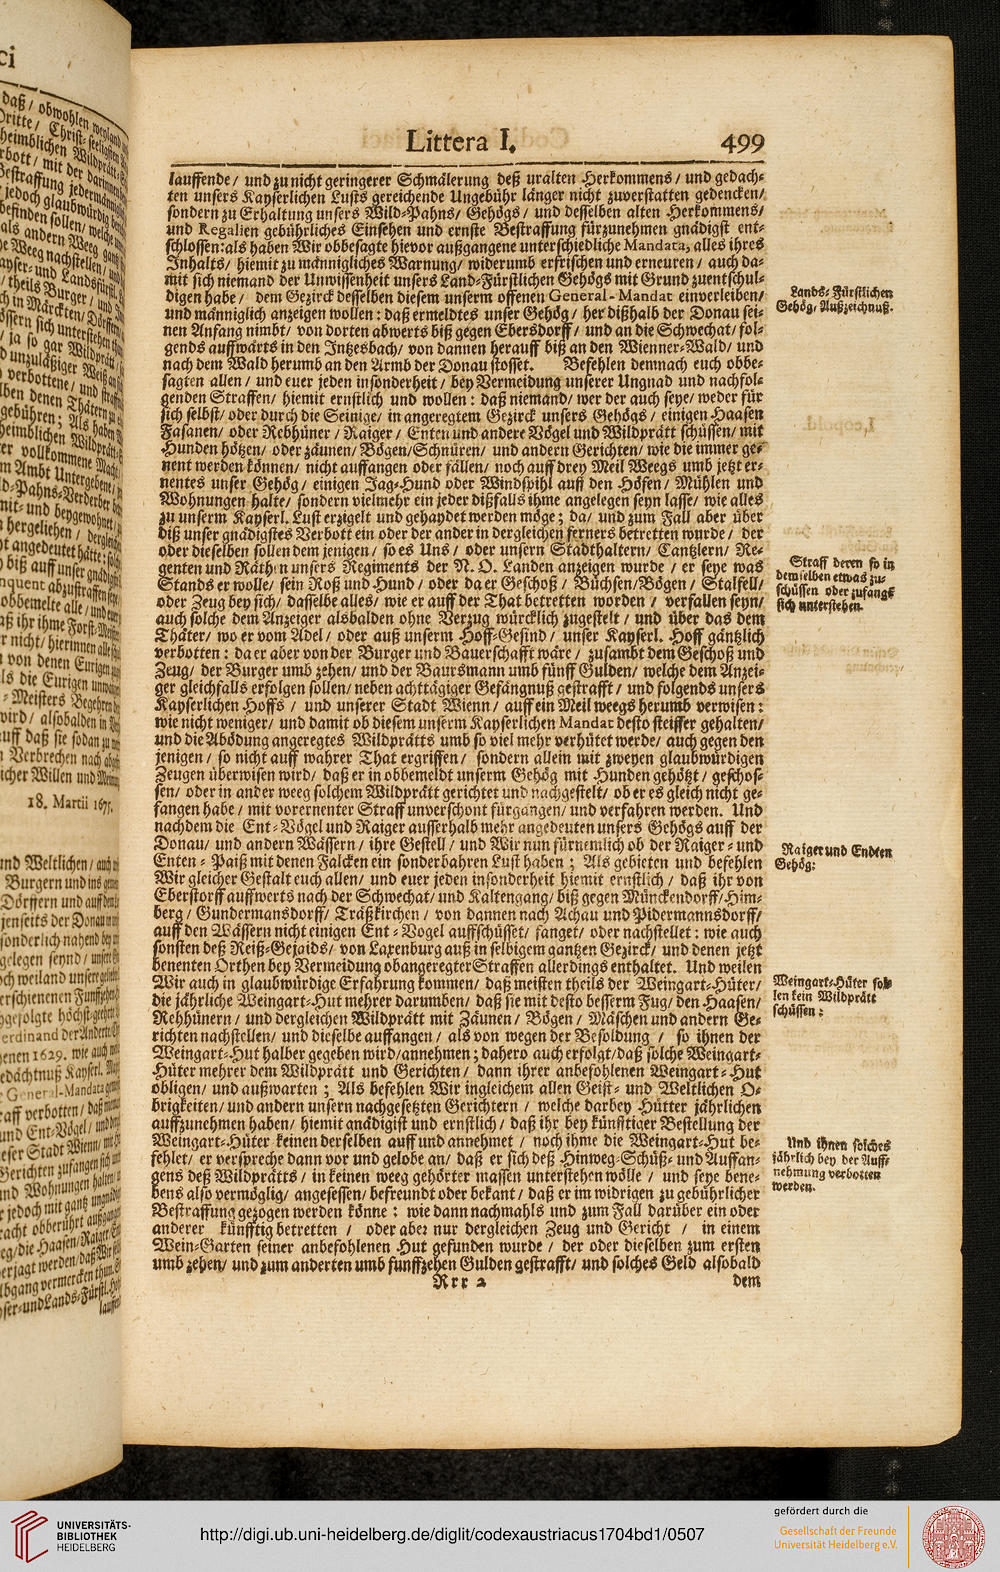 Littera I. 499
lauffende/ und zu nicht geringerer Schmälerung deß uralten Herkommens/ und gedach-
ten unsers Kayserlichen Lusts gereichende Ungebühr länger nicht zuverstatten gedencken/
sondern zu Erhaltung unsers Wild-Pahns/ Gehögs/ und desselben alten Herkommens/
und Regalien gebührliches Einsehen und ernste Bestraffung fürzunehmen gnädigst ent-
schlossen: als haben Wir obbesagte hievor außgangene unterschiedliche Mandata, alles ihres
Inhalts/ hiemit zu männigliches Warnung/ widerumb erfrischen und erneuren/ auch da-
mit sich niemand der Unwissenheit unsers Land-Fürstlichen Gehögs mit Grund zuentschul-
digen habe/ dem Gezirck desselben diesem unserm offenen General-Mandat einverleiben/
und männiglich anzeigen wollen: daß ermeldtes unser Gehög/ her dißhalb der Donau sei-
nen Anfang nimbt/ von dorten abwerts biß gegen Ebersdorff/ und an die Schwechat/ fol-
gends auffwärts in den Intzesbach/ von dannen herauff biß an den Wienner-Wald/ und
nach dem Wald herumb an den Armb der Donau stosset. Befehlen demnach euch obbe-
sagten allen/ und euer jeden insonderheit/ bey Vermeidung unserer Ungnad und nachfol-
genden Straffen/ hiemit ernstlich und wollen: daß niemand/ wer der auch seye/ weder für
sich selbst/ oder durch die Seinige/ in angeregtem Gezirck unsers Gehögs/ einigen Haasen
Fasanen/ oder Rebhüner/ Raiger/ Enten und andere Vögel und Wildprätt schüssen/ mit
Hunden hötzen/ oder zäunen/ Bögen/ Schnüren/ und andern Gerichten/ wie die immer ge-
nent werden können/ nicht auffangen oder fällen/ noch auff drey Meil Weegs umb jetzt er-
nentes unser Gehög/ einigen Jag-Hund oder Windspihl auff den Höfen/ Mühlen und
Wohnungen halte/ sondern vielmehr ein jeder dißfalls ihme angelegen seyn lasse/ wie alles
zu unserm Kayserl. Lust erzigelt und gehaydet werden möge; da/ und zum Fall aber über
diß unser gnädigstes Verbott ein oder der ander in dergleichen ferners betretten wurde/ der
oder dieselben sollen dem jenigen/ so es Uns/ oder unsern Stadthaltern/ Cantzlern/ Re-
genten und Räthen unsers Regiments der N. O. Landen anzeigen wurde/ er seye was
Stands er wolle/ sein Roß und Hund/ oder da er Geschoß/ Büchsen/ Bögen/ Stalfell/
oder Zeug bey sich/ dasselbe alles/ wie er auff der That betretten worden/ verfallen seyn/
auch solche dem Anzeiger alsbalden ohne Verzug würcklich zugestelt/ und über das dem
Thäter/ wo er vom Adel/ oder auß unserm Hoff-Gesind/ unser Kayserl. Hoff gäntzlich
verbotten: da er aber von der Burger und Bauerschafft wäre/ zusambt dem Geschoß und
Zeug/ der Burger umb zehen/ und der Baursmann umb fünff Gulden/ welche dem Anzei-
ger gleichfalls erfolgen sollen/ neben achttägiger Gefängnuß gestrafft/ und folgends unsers
Kayserlichen Hoffs/ und unserer Stadt Wienn/ auff ein Meil weegs herumb verwisen:
wie nicht weniger/ und damit ob diesem unserm Kayserlichen Mandat desto steiffer gehalten/
und die Abödung angeregtes Wildprätts umb so viel mehr verhütet werde/ auch gegen den
jenigen/ so nicht auff wahrer That ergriffen/ sondern allein mit zweyen glaubwürdigen
Zeugen überwisen wird/ daß er in obbemeldt unserm Gehög mit Hunden gehötzt/ geschos-
sen/ oder in ander weeg solchem Wildprätt gerichtet und nachgestelt/ ob er es gleich nicht ge-
fangen habe/ mit vorernenter Straff unverschont fürgangen/ und verfahren werden. Und
nachdem die Ent-Vögel und Raiger ausserhalb mehr angedeuten unsers Gehögs auff der
Donau/ und andern Wässern/ ihre Gestell/ und Wir nun fürnemlich ob der Raiger- und
Enten-Paiß mit denen Falcken ein sonderbahren Lust haben; Als gebieten und befehlen
Wir gleicher Gestalt euch allen/ und euer jeden insonderheit hiemit ernstlich/ daß ihr von
Eberstorff auffwerts nach der Schwechat/ und Kaltengang/ biß gegen Münckendorff/ Him-
berg/ Gundermansdorff/ Träßkirchen/ von dannen nach Achau und Pidermannsdorff/
auff den Wässern nicht einigen Ent-Vogel auffschüsset/ fanget/ oder nachstellet: wie auch
sonsten deß Reiß-Gejaids/ von Laxenburg auß in selbigem gantzen Gezirck/ und denen jetzt
benenten Orthen bey Vermeidung obangeregter Straffen allerdings enthaltet. Und weilen
Wir auch in glaubwürdige Erfahrung kommen/ daß meisten theils der Weingart-Hüter/
die jährliche Weingart-Hut mehrer darumben/ daß sie mit desto besserm Fug/ den Haasen/
Rehhünern/ und dergleichen Wildprätt mit Zäunen/ Bögen/ Mäschen und andern Ge-
richten nachstellen/ und dieselbe auffangen/ als von wegen der Besoldung/ so ihnen der
Weingart-Hut halber gegeben wird/ annehmen; dahero auch erfolgt/ daß solche Weingart-
Hüter mehrer dem Wildprätt und Gerichten/ dann ihrer anbefohlenen Weingart-Hut
obligen/ und außwarten; Als befehlen Wir ingleichem allen Geist- und Weltlichen O-
brigkeiten/ und andern unsern nachgesetzten Gerichtern/ welche darbey Hütter jährlichen
auffzunehmen haben/ hiemit gnädigist und ernstlich/ daß ihr bey künftiger Bestellung der
Weingart-Hüter keinen derselben auff und annehmet/ noch ihme die Weingart-Hut be-
fehlet/ er verspreche dann vor und gelobe an/ daß er sich deß Hinweg-Schüß- und Auffan-
gens deß Wildprätts/ in keinen weeg gehörter massen unterstehen wölle/ und seye bene-
bens also vermöglig/ angesessen/ befreundt oder bekant/ daß er im widrigen zu gebührlicher
Bestraffung gezogen werden könne: wie dann nachmahls und zum Fall darüber ein oder
anderer künfftig betretten/ oder aber nur dergleichen Zeug und Gericht/ in einem
Wein-Garten seiner anbefohlenen Hut gefunden wurde/ der oder dieselben zum ersten
umb zehen/ und zum anderten umb funffzehen Gulden gestrafft/ und solches Geld alsobald
Rrr 2 dem
Lands-Fürstlichen
Gehög/ Außzeichnuß.
Straff deren so in
demselben etwas zu-
schüssen oder zufangē
sich unterstehen.
Raiger und Endten
Gehög:
Weingart-Hüter sol-
len kein Wildprätt
schüssen:
Und ihnen solches
jährlich bey der Auff-
nehmung verbotten
werden.
18. Martii 1675.
UNIVERSITÄTS-
BIBLIOTHEK
HEIDELBERG
http://digi.ub.uni-heidelberg.de/diglit/codexaustriacus1704bd1/0507
gefördert durch die
Gesellschaft der Freunde
Universität Heidelberg e.V.